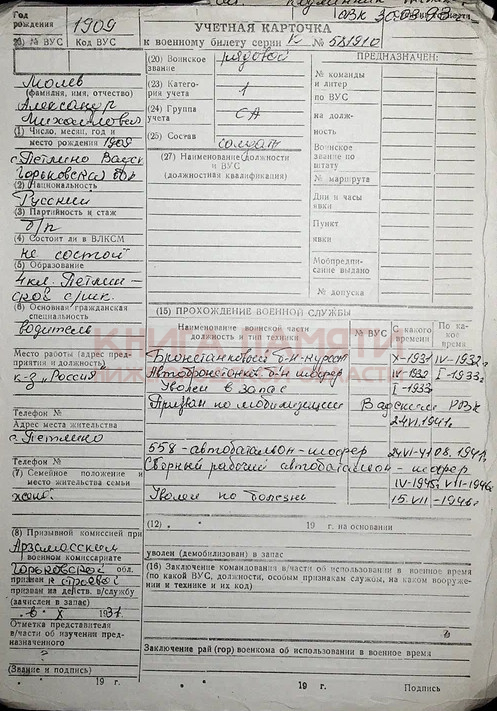 Год
рождения 1909
№ ВУС Код ВУС
УЧЕТНАЯ КАРТОЧКА
к военному билету серии № 581910
Молев
(фамилия, имя, отчество)
Александр
Михайлович
(1) Число, месяц, год и
место рождения 1909
с. Петлино Вадск
Горьковской обл
(2) Национальность
Русский
(3) Партийность и стаж
б/п
(4) Состоит ли в ВЛКСМ
не состоит
(5) Образование
4 кл. Петлин-
ской с/шк.
(6) Основная гражданская
специальность
водитель
Место работы (адрес пред-
приятия и должность)
к-з „Россия"
Телефон №
Адрес места жительства
с. Петлино
Телефон №
(7) Семейное положение и
место жительства семьи
жена.
(8) Призывной комиссией при
Арзамасском
военном комиссариате
Горьковской обл.
признан к строевой
призван на действ. в/службу
(зачислен в запас)
„6" X 1931.
Отметка представителя
в/части об изучении пред-
назначенного
?
(Звание и подпись)
" " 19 г.
(20) Воинское
звание рядовой
(23) Катего-
рия учета 1
(24) Группа
учета СА
(25) Состав солдат
(27) Наименование должности
и ВУС
(должностная квалификация)
ПРЕДНАЗНАЧЕН:
№ команды
и литер
по ВУС
на долж-
ность
Воинское
звание по
штату
№ маршрута
Дни и часы
явки
Пункт
явки
Мобпредпи-
сание выдано
№ допуска
(15) ПРОХОЖДЕНИЕ ВОЕННОЙ СЛУЖБЫ
Наименование воинской части
должность и тип техники № ВУС С какого
времени По ка-
кое
время
Бронетанковый б-н-курсант X-1931 IV-1932г.
Автоброневой б-н шофер IV-1932 I-1933г.
Уволен в запас I-1933
Призван по мобилизации Вадским РВК
24.VI.1941г.
558-автобатальон-шофер 24.VI-41 08.1941г.
Сборный рабочий автобатальон - шофер
IV-1945г. VII-1946г.
Уволен по болезни 15.VII-1946г.
(12) " " 19 г. на основании
уволен (демобилизован) в запас
(16) Заключение командования в/части об использовании в военное время
(по какой ВУС, должности, особым признакам службы, на каком вооруже-
нии и технике и их код)
Заключение рай (гор) военкома об использовании в военное время
" " 19 г. Подпись
КНИГА ПАМЯТИ
НИЖЕГОРОДСКОЙ ОБЛАСТИ